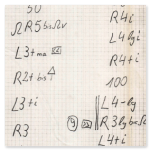 50
ΩR5bsΩv
L3+me
R2+bs
L3+i
R3
R4i
L4lgi
R4+i
100
L4-lg
R3lgbeΩ
L4+i